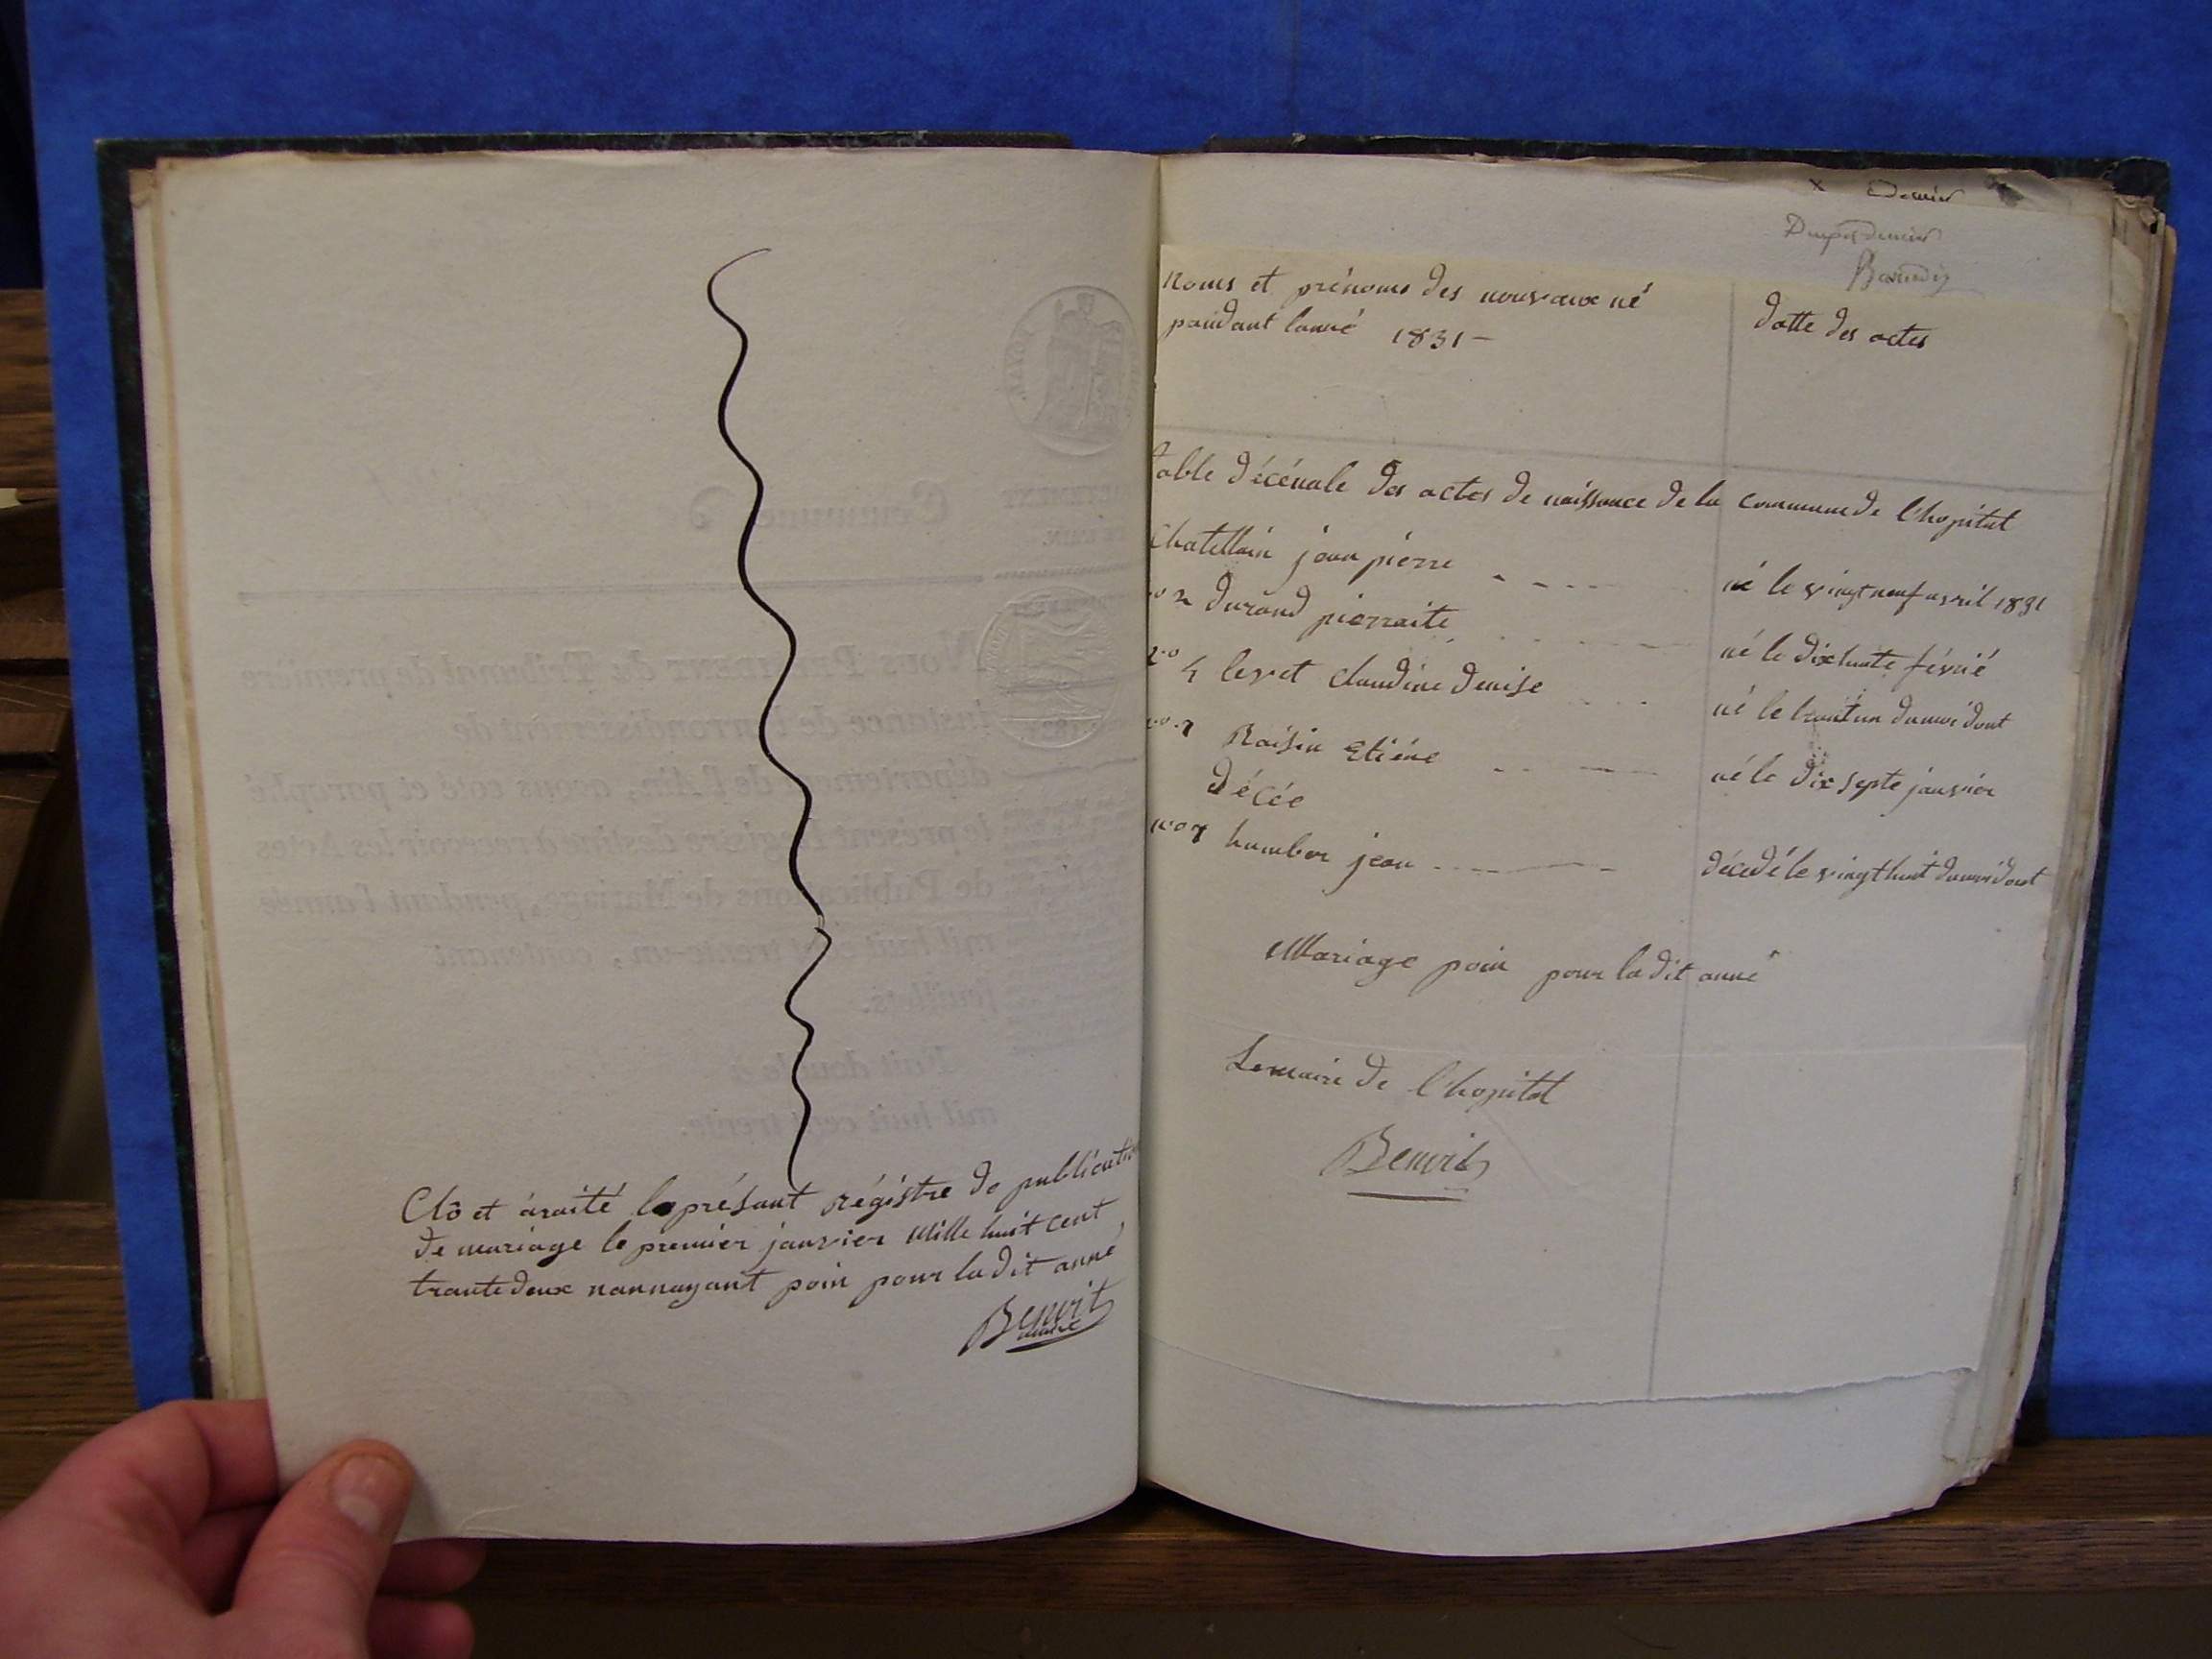 Clô et áraité le présant régistre de publication
de mariage le premier janvier Mille huit cent
trante deux nannayant poin pour ladit anné
Benoit
maire
Noms et prénoms des nouvaux né
paindant lanné 1831 -
datte des actes
table décénale des actes de naissance de la commune de l'hopital
Chatillain jean pierre
né le vingt neuf avril 1831
no 2 durand pierraite
né le dixhuite févrié
no 4 levet claudine denise
né le trantun dumoi dout
Raisin Etiéne
né le dix septe janvier
décée
humber jean
décedé le vingt huit dumoi dout
Mariage poin pour ladit anné
Le maire de l'hopital
Benoit